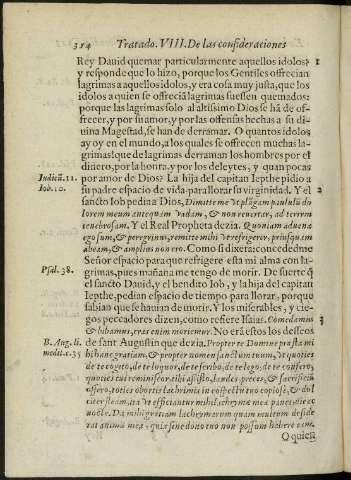 314 Tratado. VIII. De las consideraciones
Rey Dauid quemar particularmente aquellos idolos?
y responde que lo hizo, porque los Gentiles offrecian
lagrimas a aquellos idolos, y era cosa muy justa, que los
idolos a quien se offreciā lagrimas fuessen quemados:
porque las lagrimas solo al altissimo Dios se hā de of-
frecer, y por su amor, y por las offensas hechas a su di-
uina Magestad, se han de derramar. O quantos idolos
ay oy en el mundo, a los quales se offrecen muchas la-
grimas! que de lagrimas derraman los hombres por el
dinero, por la honra, y por los deleytes, y quan pocas
por amor de Dios? La hija del capitan Iepthe pidio a
su padre espacio de vida para llorar su virginidad. Y el
sancto Iob pedia a Dios, Dimitte me vt plāgam paululū do
lorem meum antequam vadam, & non reuertar, ad terrem
tenebrosam. Y el Real Propheta dezia. Quoniam aduena
ego sum, & peregrinus, remitte mihi vt refrigerer, priusquam
abeam, & amplius non ero. Como si dixera: concededme
Señor espacio para que refrigere esta mi alma con la-
grimas, pues mañana me tengo de morir. De suerte q̄
el sancto Dauid, y el bendito Iob, y la hija del capitan
Iepthe, pedian espacio de tiempo para llorar, porque
sabian que se hauian de morir. Y los miserables, y cie-
gos peccadores dizen, como refiere Isaias. Comedamus
& bibamus, cras enim moriemur. No erā estos los desseos
de sant Augustin que dezia. Propter te Domine præsta mi
hi hanc gratiam, & propter nomen sanctum tuum, vt quoties
de te cogito, de te loquor, de te scribo, de te lego, de te confero,
quoties tui reminiscor, tibi assisto, laudes, preces, & sacrificiū
offero, toties obortis lachrimis in conspectu tuo copiosè, & dul
citer fleam, ita vt efficiantur mihi lachrymæ meæ panes die ac
nocte. Da mihi gratiam lachrymarum quam multum deside
rat anima mea, quia sine dono tuo non possum habere eam.
O quien
Indicū. 11.
Iob. 10.
Psal. 38.
B. Aug. li.
medit. c. 35
1
2
3